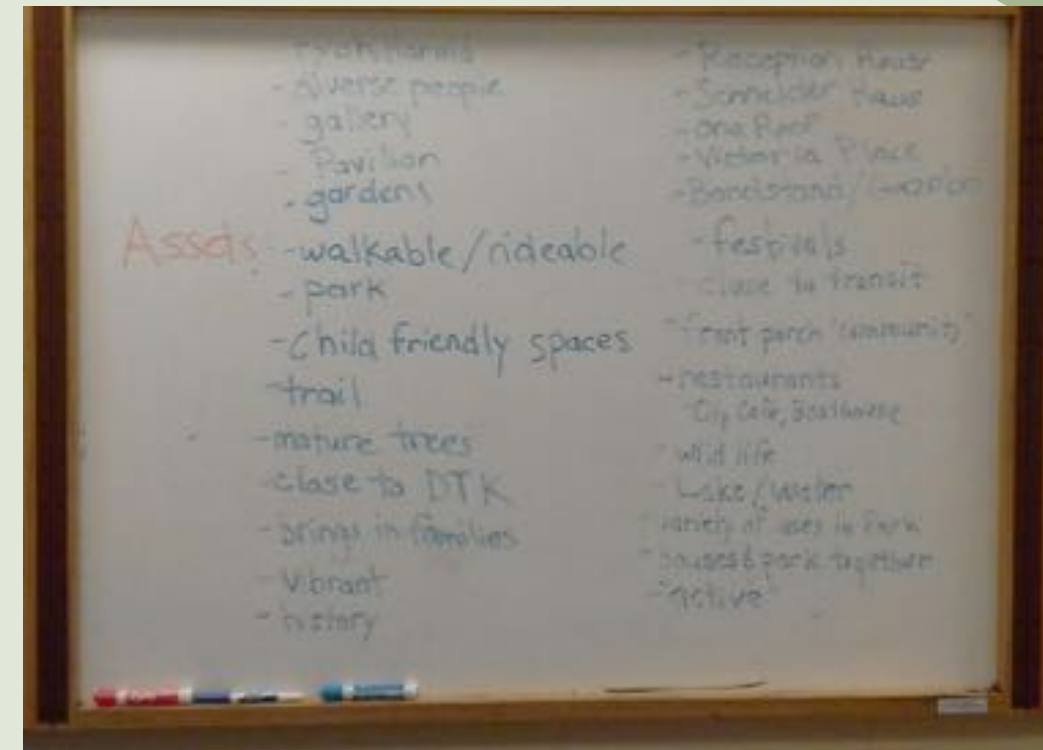 - diverse people
- gallery
- Pavilion
- gardens
Assets: - walkable/rideable
- park
- Child friendly spaces
- trail
- mature trees
- close to DTK
- brings in families
- Vibrant
- history
- Reception House
- Schneider Haus
- One Roof
- Victoria Place
- Bandstand/
- festivals
- close to transit
- front porch "community"
- restaurants
City Cafe, Boathouse
- wild life
- Lake/water
- variety of uses in Park
- houses & park together
- "active"